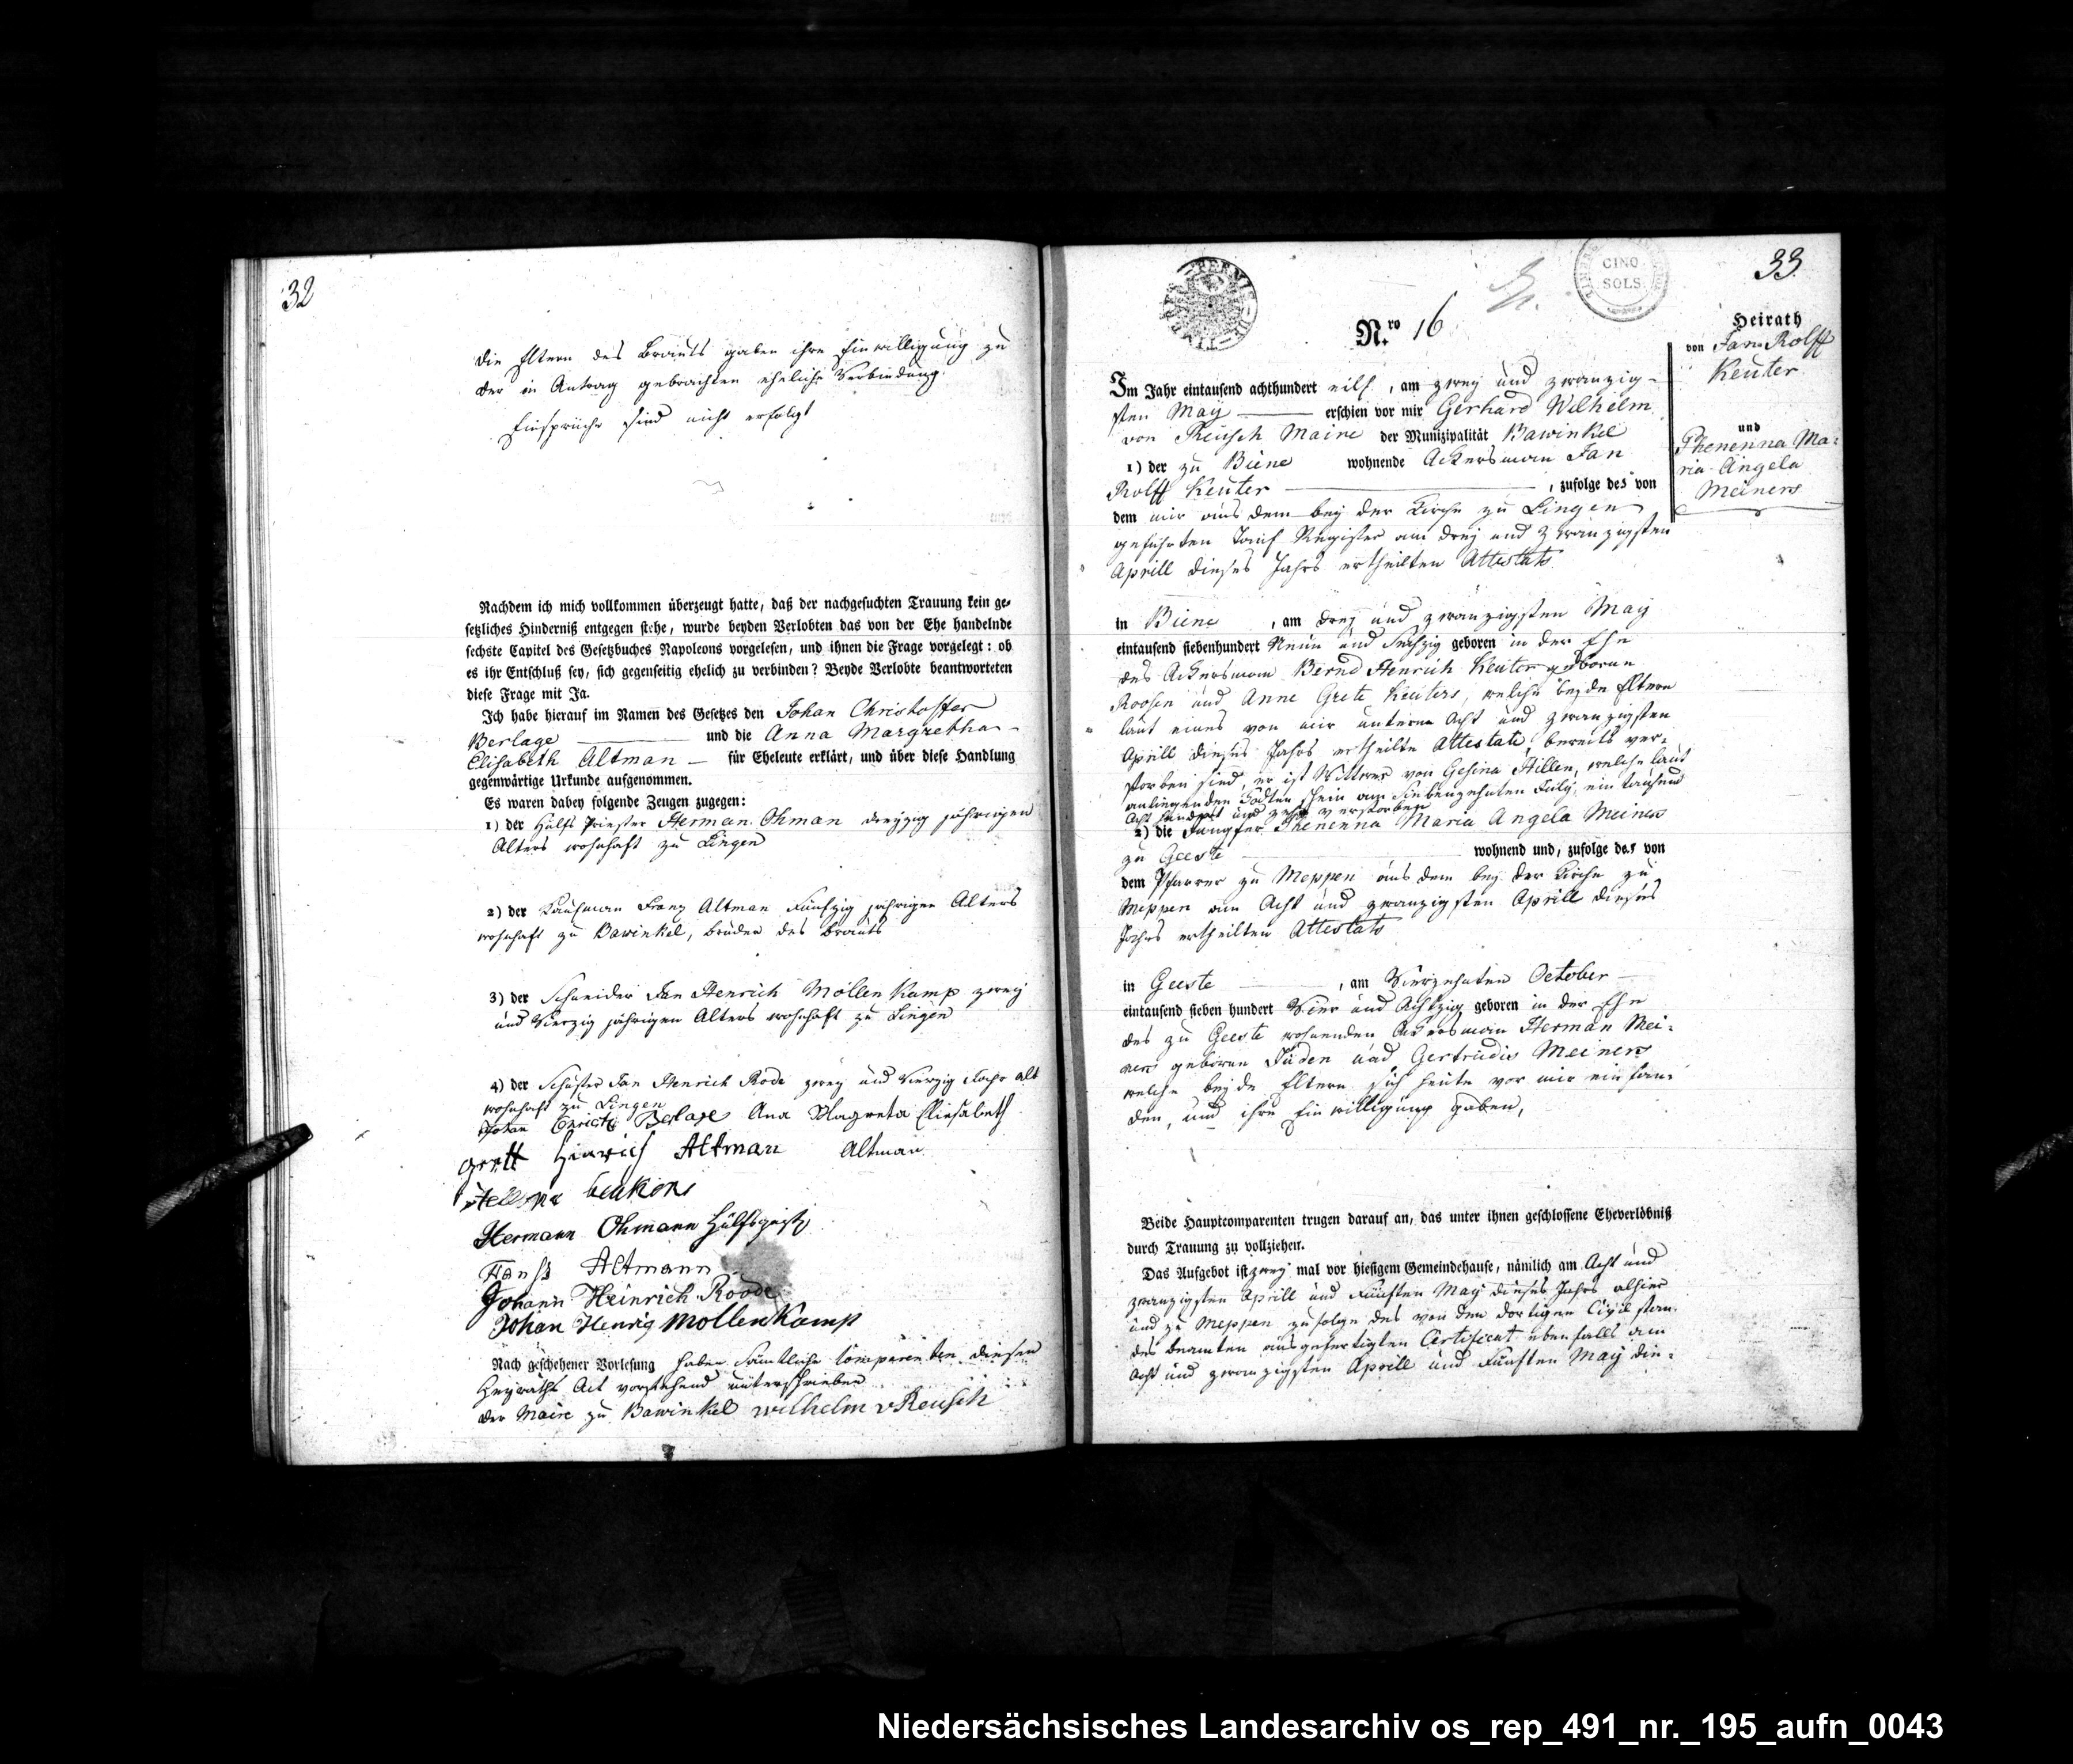 32
die Eltern des Brauts gaben ihre Einwilligung zu
der in Antrag gebrachten eheliche Verbindung.
Einsprüche sind nicht erfolgt
Nachdem ich mich vollkommen überzeugt hatte, daß der nachgesuchten Trauung kein ge-
setzliches Hinderniß entgegen stehe, wurde beyden Verlobten das von der Ehe handelnde
sechste Capitel des Gesetzbuches Napoleons vorgelesen, und ihnen die Frage vorgelegt: ob
es ihr Entschluß sey, sich gegenseitig ehelich zu verbinden? Beyde Verlobte beantworteten
diese Frage mit Ja.
Ich habe hierauf im Namen des Gesetzes den Johan Christoffer
Berlage und die Anna Margretha
Elisabeth Altman für Eheleute erklärt, und über diese Handlung
gegenwärtige Urkunde aufgenommen.
Es waren dabey folgende Zeugen zugegen:
1) der Hülfs Priester Herman Ohman dreyzig jährigen
Alters wohnhaft zu Lingen
2) der Kaufman Franz Altman Fünfzig jährigen Alters
wohnhaft zu Bawinkel, bruder des brauts
3) der Schneider Jan Henrich Möllen Kamp zwey
und Vierzig jährigen Alters wohnhaft zu Lingen
4) der Schuster Jan Henrich Rode zwey und Vierzig Jahr alt
wohnhaft zu Lingen
Johan Berlage Ana Magreta Eliesabeth
Hinrich Altman Altman
Hermann Ohmann
Altmann
Johann Heinrich Roode
Johan Henrig Mollenkamp
Nach geschehener Vorlesung haben sämtliche Comparenten diesen
Heyraths Act vorstehend unterschrieben
der Maire zu Bawinkel Wilhelm v Reusch
33
CINQ
SOLS.
N.ro 16
Heirath
von Jan Rolff
Keuter
und
Thenenna Ma=
ria Angela
Meiners
Im Jahr eintausend achthundert eilf, am zwey und zwanzig-
sten May erschien vor mir Gerhard Wilhelm
von Reusch Maire der Munizipalität Bawinkel
1) der zu Biene wohnende Ackersman Jan
Rolff Keuter, zufolge des von
dem mir aus dem bey der Kirche zu Lingen
geführten Tauf Register am drey und zwanzigsten
Aprill dieses Jahrs ertheilten Attestats
in Biene, am drey und zwanzigsten May
eintausend siebenhundert Neun und Sechzig geboren in der Ehe
des Ackersman Bernd Henrich Keuter geborne
Roosen und Anne Grete Keuters, welche beyde Eltern
laut eines von mir unterm Acht und zwanzigsten
Aprill dieses Jahrs ertheilte Attestate, bereits ver=
storben sind, er ist Wittwer von Gesina Hillen, welche laut
anliegenden Todten schein am Siebenzehnten July ein tausend
Acht hundert und zehn verstorben
2) die Jungfer Thenenna Maria Angela Meiners
zu Geeste wohnend und, zufolge des von
dem Pfarrer zu Meppen aus dem bey der Kirche zu
Meppen am Acht und zwanzigsten Aprill dieses
Jahrs ertheilten Attestats
in Geeste, am Vierzehnten October
eintausend sieben hundert Vier und Achtzig geboren in der Ehe
des zu Geeste wohnenden Ackersman Herman Mei=
ners geborne Jüden und Gertrudis Meiners
welche beyde Eltern sich heute vor mir einfan=
den, und ihre Einwilligung gaben,
Beide Hauptcomparenten trugen darauf an, das unter ihnen geschlossene Eheverlöbniß
durch Trauung zu vollziehen.
Das Aufgebot ist zwey mal vor hiesigem Gemeindehause, nämlich am Acht und
zwanzigsten Aprill und Fünften May dieses Jahrs alhier
und zu Meppen zufolge des von dem dortigen Civil stan=
des beamten ausgefertigten Certificat ebenfalls am
Acht und zwanzigsten Aprill und Fünften May die=
Niedersächsisches Landesarchiv os_rep_491_nr._195_aufn_0043